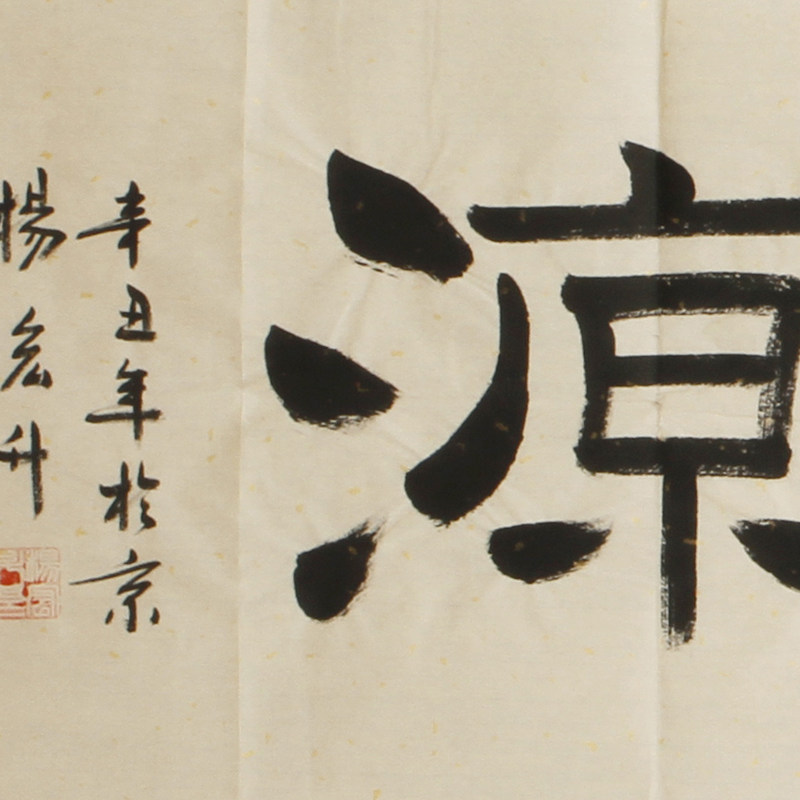 源
辛丑年於京
楊宏升